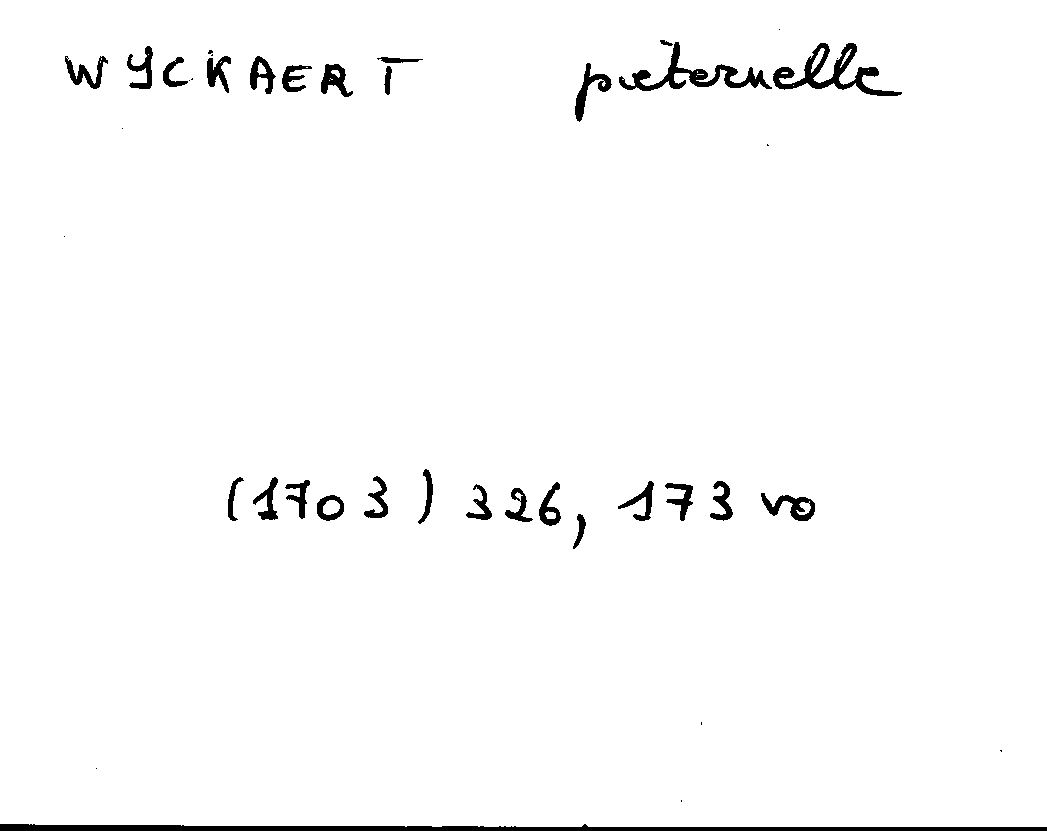 WYCKAERT pieternelle
(1703) 326, 173 vo